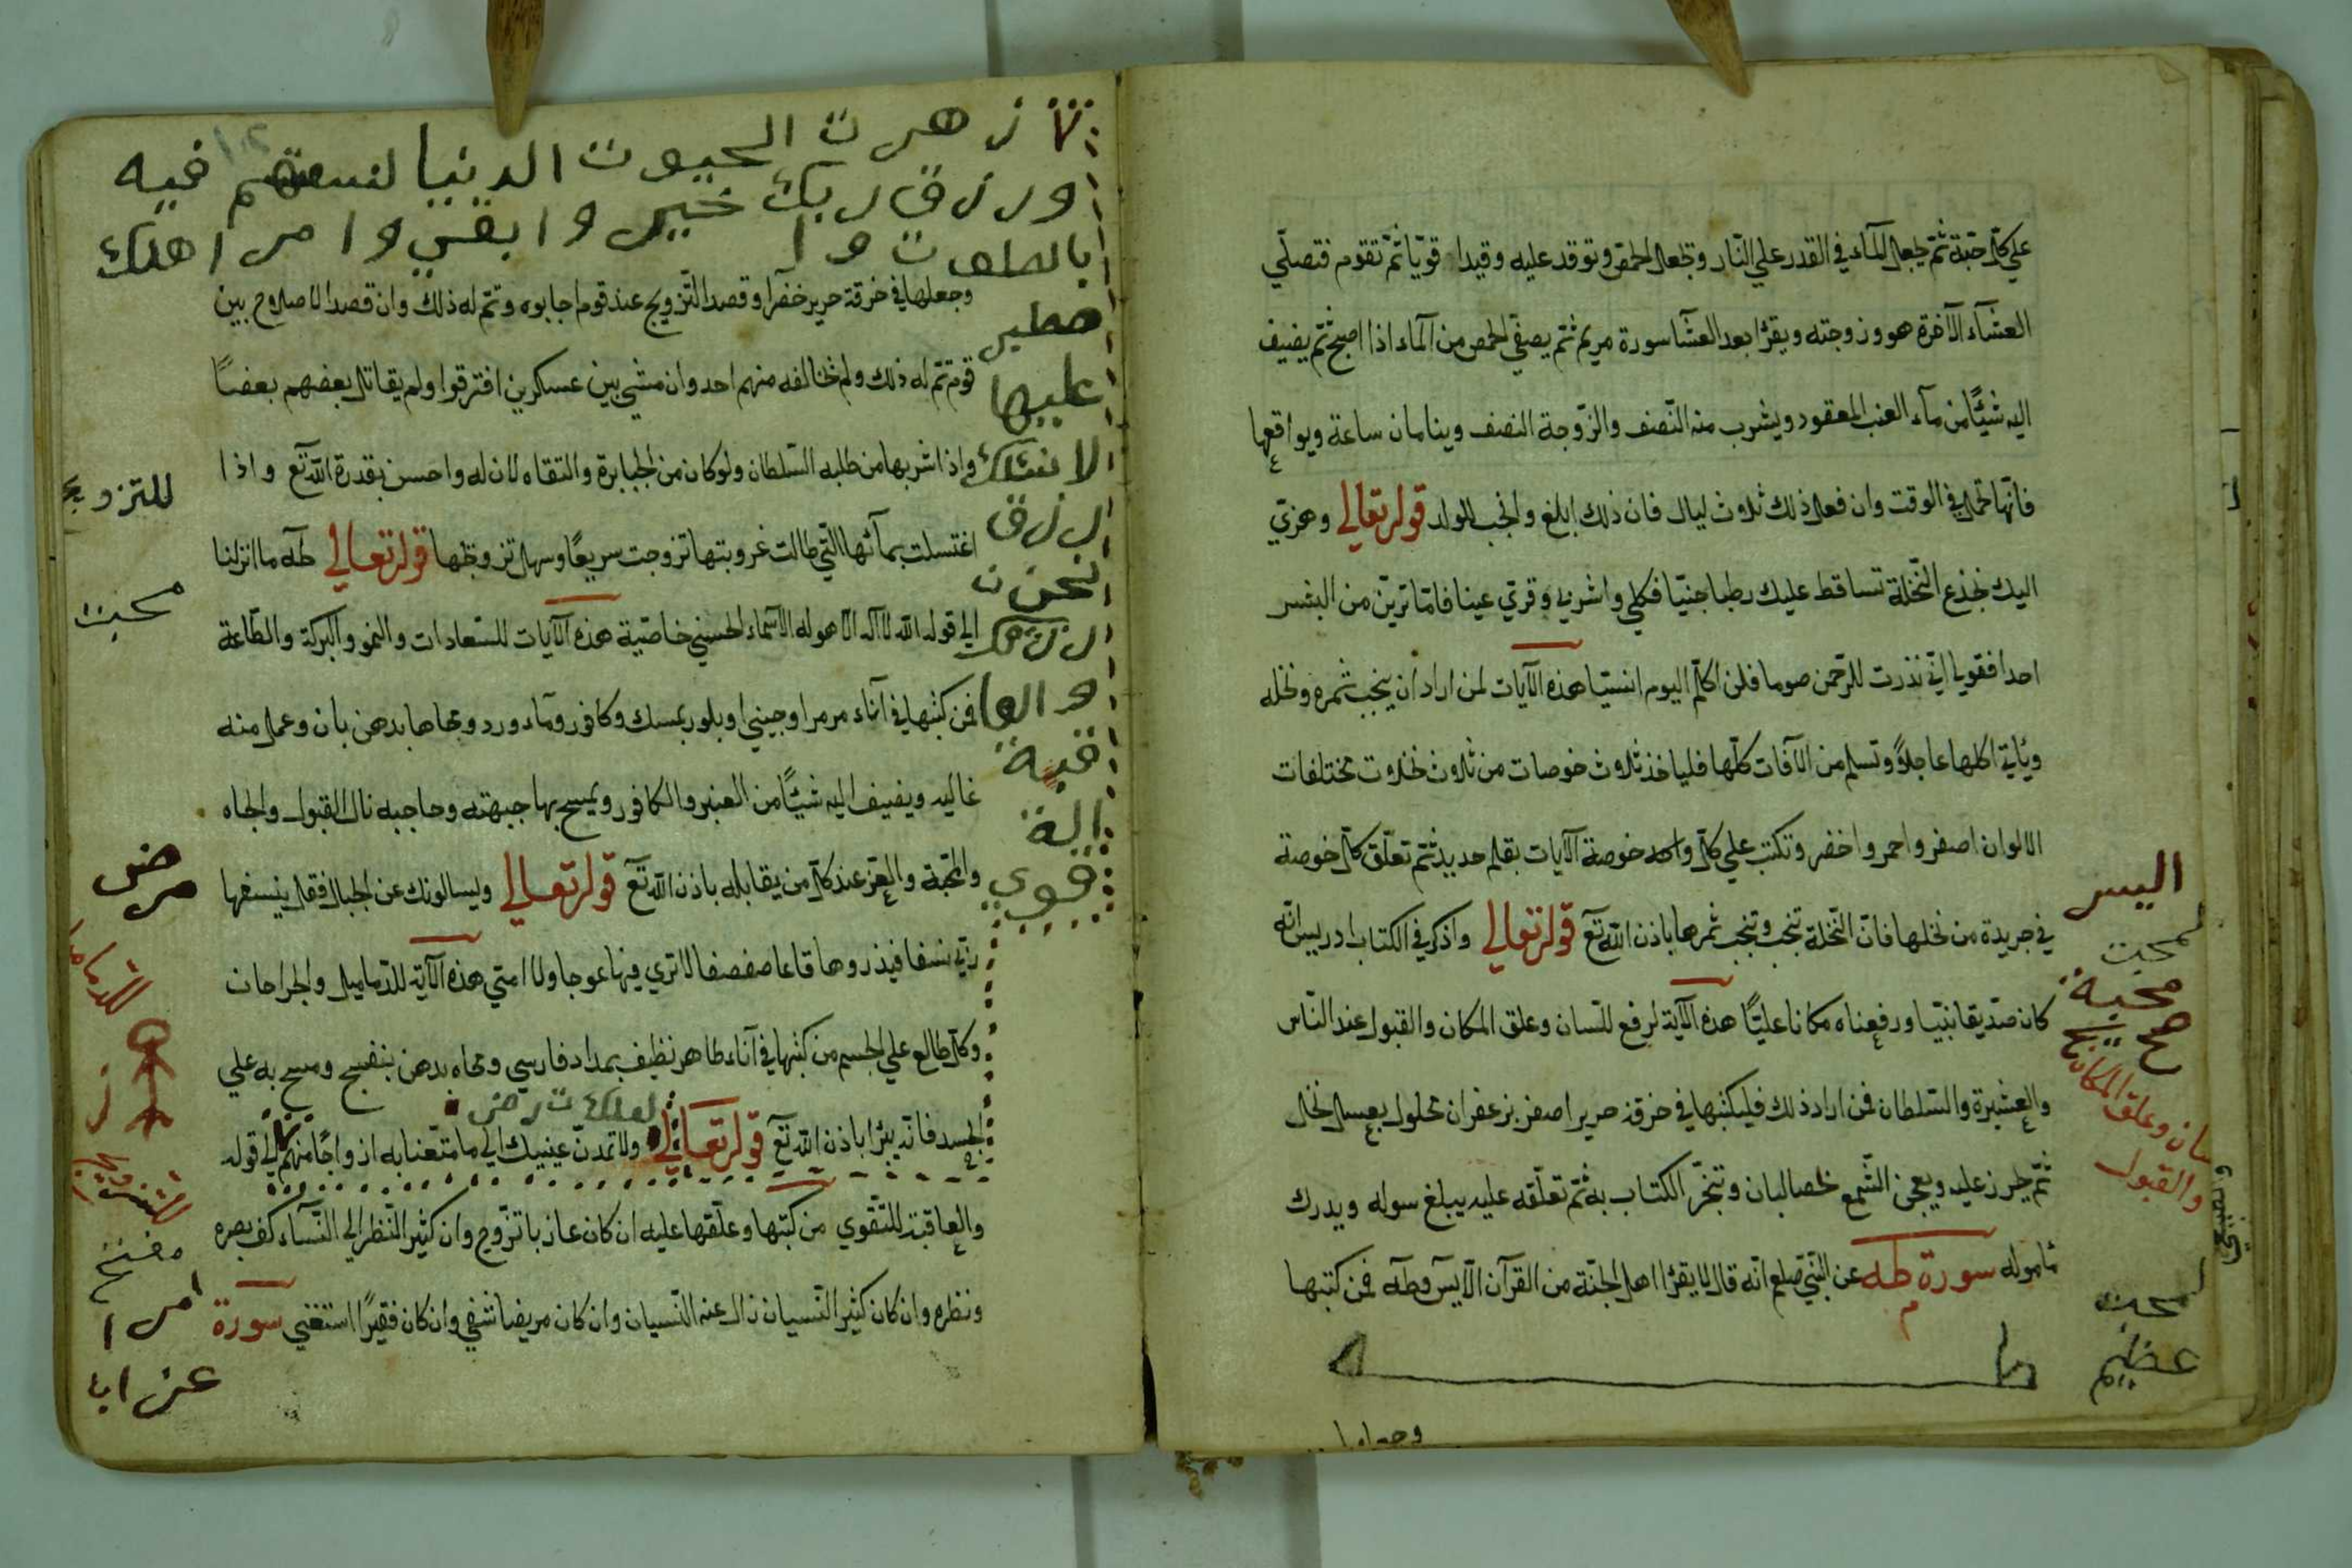 علي كل حبة ثم يجعل الماء في القدر علي النار وتجعل الحمص وتوقد عليه وقيدا قويا ثم تقوم فتصلي
العشآء الآخرة هو وزوجته ويقرا بعد العشا سورة مريم ثم يصفي الحمص من المآء اذا اصبح ثم يضيف
اليه شيئًا من مآء العنب المعقود ويشرب منه النّصف والزّوجة النصف وينامان ساعة ويواقعها
فانّها تحمل في الوقت وان فعل ذلك ثلاوث ليال فان ذلك ابلغ وانجب للولد قوله تعالي وهزي
اليك بجذع النّخلة تساقط عليك رطبا جنيّا فكلي واشربي وقري عينا فامّا ترينّ من البشر
احدا فقولي اني نذرت للرّحمن صوما فلن اكلّم اليوم انسيّا هذه الآيات لمن اراد ان ينجب ثمره ونخله
وياتي اكلها عاجلاً وتسلم من الآفات كلّها فلياخذ ثلاوث خوصات من ثلاوث نخلاوت مختلفات
الالوان اصفر واحمر واخضر وتكتب علي كل واحد خوصة الآيات بقلم حديد ثم تعلّق كل خوصة
في جريدة من نخلها فانّ النّخلة تنجب وتنجب ثمرها باذن الله تع قوله تعالي واذكر في الكتاب ادريس انّه
كان صدّيقا نبيّا ورفعناه مكانا عليّا هذه الآية لرفع للسان وعلق المكان والقبول عند النّاس
والعشيرة والسّلطان فمن اراد ذلك فليكتبها في خرقة حرير اصفر بزعفران محلول بعسل نحل
ثمّ يحرز عليه ويعجن الشّمع بحصالبان وتبخّر الكتاب به ثمّ تعلّقه عليه يبلغ سوله ويدرك
ماموله سورة طه عن النّبي صلعم انه قال لا يقرا اهل الجنّة من القرآن الّا يس وطه فمن كتبها
اليسر
لمحبت
محبة
سان وعلق المكان
والقبول
لمحبت
عظيم
زهرت الحيوت الدنيا لنفتنهم فيه
ورزق ربك خير وابقي وامر اهلك
بالصلوت وا
صطبر
عليها
لا نسئلك
رزق
نحن ن
رزقك
والعا
قبة
للتقوي
وجعلها في خرقة حرير خضرا وقصد التّزويج عند قوم اجابوه وتمّ له ذلك وان قصد الاصلاوح بين
قوم تمّ له ذلك ولم يخالفه منهم احد وان مشي بين عسكرين افترقوا ولم يقاتل بعضهم بعضًا
واذا شربها من طلبه السّلطان ولو كان من الجبابرة والتقاه لان له واحسن بقدرة الله تع واذا
اغتسلت بمآئها الّتي طالت عزوبتها تزوجت سريعًا وسهل تزويجها قوله تعالي طه ما انزلنا
الي قوله الله لا اله الّا هو له الاسماء الحسني خاصّية هذه الآيات للسّعادات والنمو والبركة والطّاعة
فمن كتبها في آناء مرمر او جيني او بلور بمسك وكافور ومآء ورد ومحاها بدهن بان وعمل منه
غاليه ويضيف اليه شيئًا من العنبر والكافور ويمسح بها جبهته وحاجبه نال القبول والجاه
والمحبّة والعز عند كل من يقابله باذن الله تع قوله تعالي ويسالونك عن الجبال فقل ينسفها
ربّي نسفا فيذروها قاعا صفصفا لا تري فيها عوجا ولا امتي هذه الآية للدّماميل والجراحات
وكل طالع علي الجسم من كتبها في آناء طاهر نظيف بمداد فارسي ومحاه بدهن بنفسج ومسح به علي
الجسد فانه يبرا باذن الله تع قوله تعالي ولا تمدنّ عينيك الي ما متّعنا به ازواجًا منهم الي قوله
لعلك ترضي
والعاقبة للتّقوي من كتبها وعلّقها عليه ان كان عازبا تزوّج وان كثير النّظر الي النّساء كف بصره
ونظره وان كان كثير النّسيان زال عنه النّسيان وان كان مريضا شفي وان كان فقيرًا استغني سورة
للتزويج
محبت
مرض
للدماميل
للتزويج